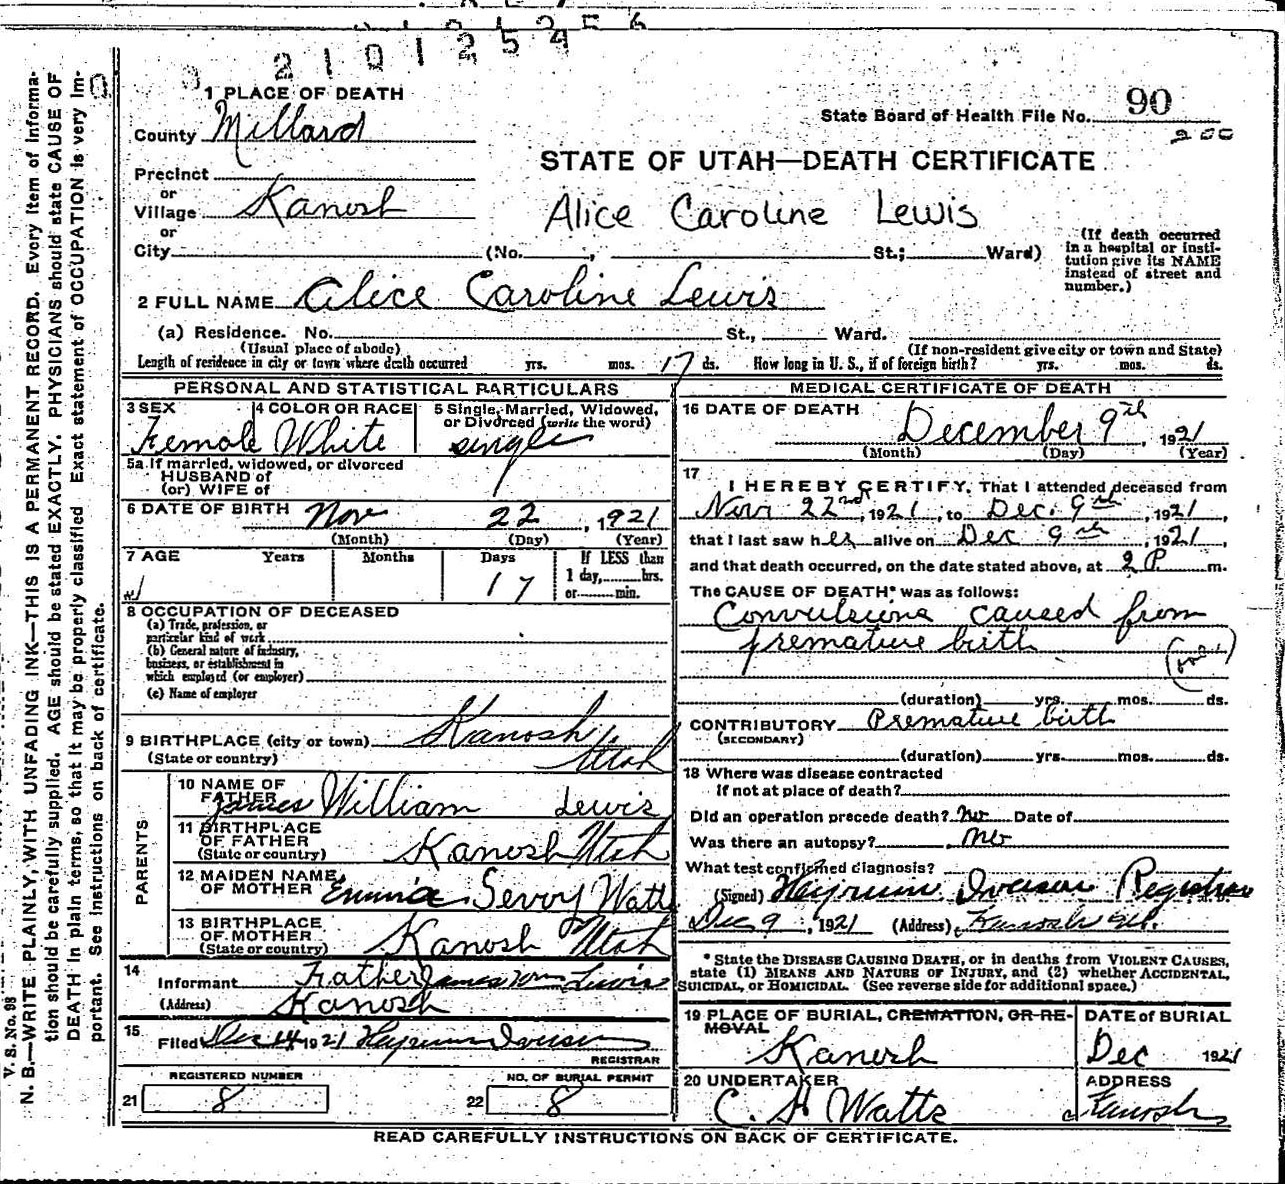 2 1 0 1 2 5 4
1 PLACE OF DEATH
County Millard
State Board of Health File No. 90
200
STATE OF UTAH—DEATH CERTIFICATE
Precinct
or
Village Kanosh
Alice Caroline Lewis
or
City (No. , St.; Ward)
(If death occurred
in a hospital or insti-
tution give its NAME
instead of street and
number.)
2 FULL NAME Alice Caroline Lewis
(a) Residence. No. St., Ward.
(Usual place of abode) (If non-resident give city or town and State)
Length of residence in city or town where death occurred yrs. mos. 17 ds. How long in U. S., if of foreign birth? yrs. mos. ds.
PERSONAL AND STATISTICAL PARTICULARS
3 SEX 4 COLOR OR RACE 5 Single, Married, Widowed,
or Divorced (write the word)
Female White single
5a If married, widowed, or divorced
HUSBAND of
(or) WIFE of
6 DATE OF BIRTH Nov 22, 1921
(Month) (Day) (Year)
7 AGE Years Months Days If LESS than
17 1 day, hrs.
or min.
8 OCCUPATION OF DECEASED
(a) Trade, profession, or
particular kind of work
(b) General nature of industry,
business, or establishment in
which employed (or employer)
(c) Name of employer
9 BIRTHPLACE (city or town) Kanosh
(State or country) Utah
PARENTS
10 NAME OF
FATHER James William Lewis
11 BIRTHPLACE
OF FATHER
(State or country) Kanosh Utah
12 MAIDEN NAME
OF MOTHER Emma Watts
13 BIRTHPLACE
OF MOTHER
(State or country) Kanosh Utah
14
Informant Father James Wm Lewis
(Address) Kanosh
15
Filed Dec 14 1921 Heyrum Iverson
REGISTRAR
REGISTERED NUMBER NO. OF BURIAL PERMIT
21 8 22 8
MEDICAL CERTIFICATE OF DEATH
16 DATE OF DEATH
December 9th, 1921
(Month) (Day) (Year)
17
I HEREBY CERTIFY, That I attended deceased from
Nov 22nd, 1921, to Dec. 9th, 1921,
that I last saw her alive on Dec 9th, 1921,
and that death occurred, on the date stated above, at 2 P m.
The CAUSE OF DEATH* was as follows:
Convulsions caused from
premature birth
(duration) yrs. mos. ds.
CONTRIBUTORY Premature birth
(SECONDARY)
(duration) yrs. mos. ds.
18 Where was disease contracted
If not at place of death?
Did an operation precede death? No Date of
Was there an autopsy? no
What test confirmed diagnosis?
(Signed) Heyrum Iverson Registrar
Dec 9, 1921 (Address) Kanosh Ut.
* State the DISEASE CAUSING DEATH, or in deaths from VIOLENT CAUSES,
state (1) MEANS AND NATURE OF INJURY, and (2) whether ACCIDENTAL,
SUICIDAL, or HOMICIDAL. (See reverse side for additional space.)
19 PLACE OF BURIAL, CREMATION, OR RE-
MOVAL
Kanosh
DATE OF BURIAL
Dec 1921
20 UNDERTAKER
C. H Watts
ADDRESS
Kanosh
READ CAREFULLY INSTRUCTIONS ON BACK OF CERTIFICATE.
V. S. No. 98
N. B.—WRITE PLAINLY, WITH UNFADING INK—THIS IS A PERMANENT RECORD. Every item of informa-
tion should be carefully supplied. AGE should be stated EXACTLY. PHYSICIANS should state CAUSE OF
DEATH in plain terms, so that it may be properly classified. Exact statement of OCCUPATION is very im-
portant. See instructions on back of certificate.